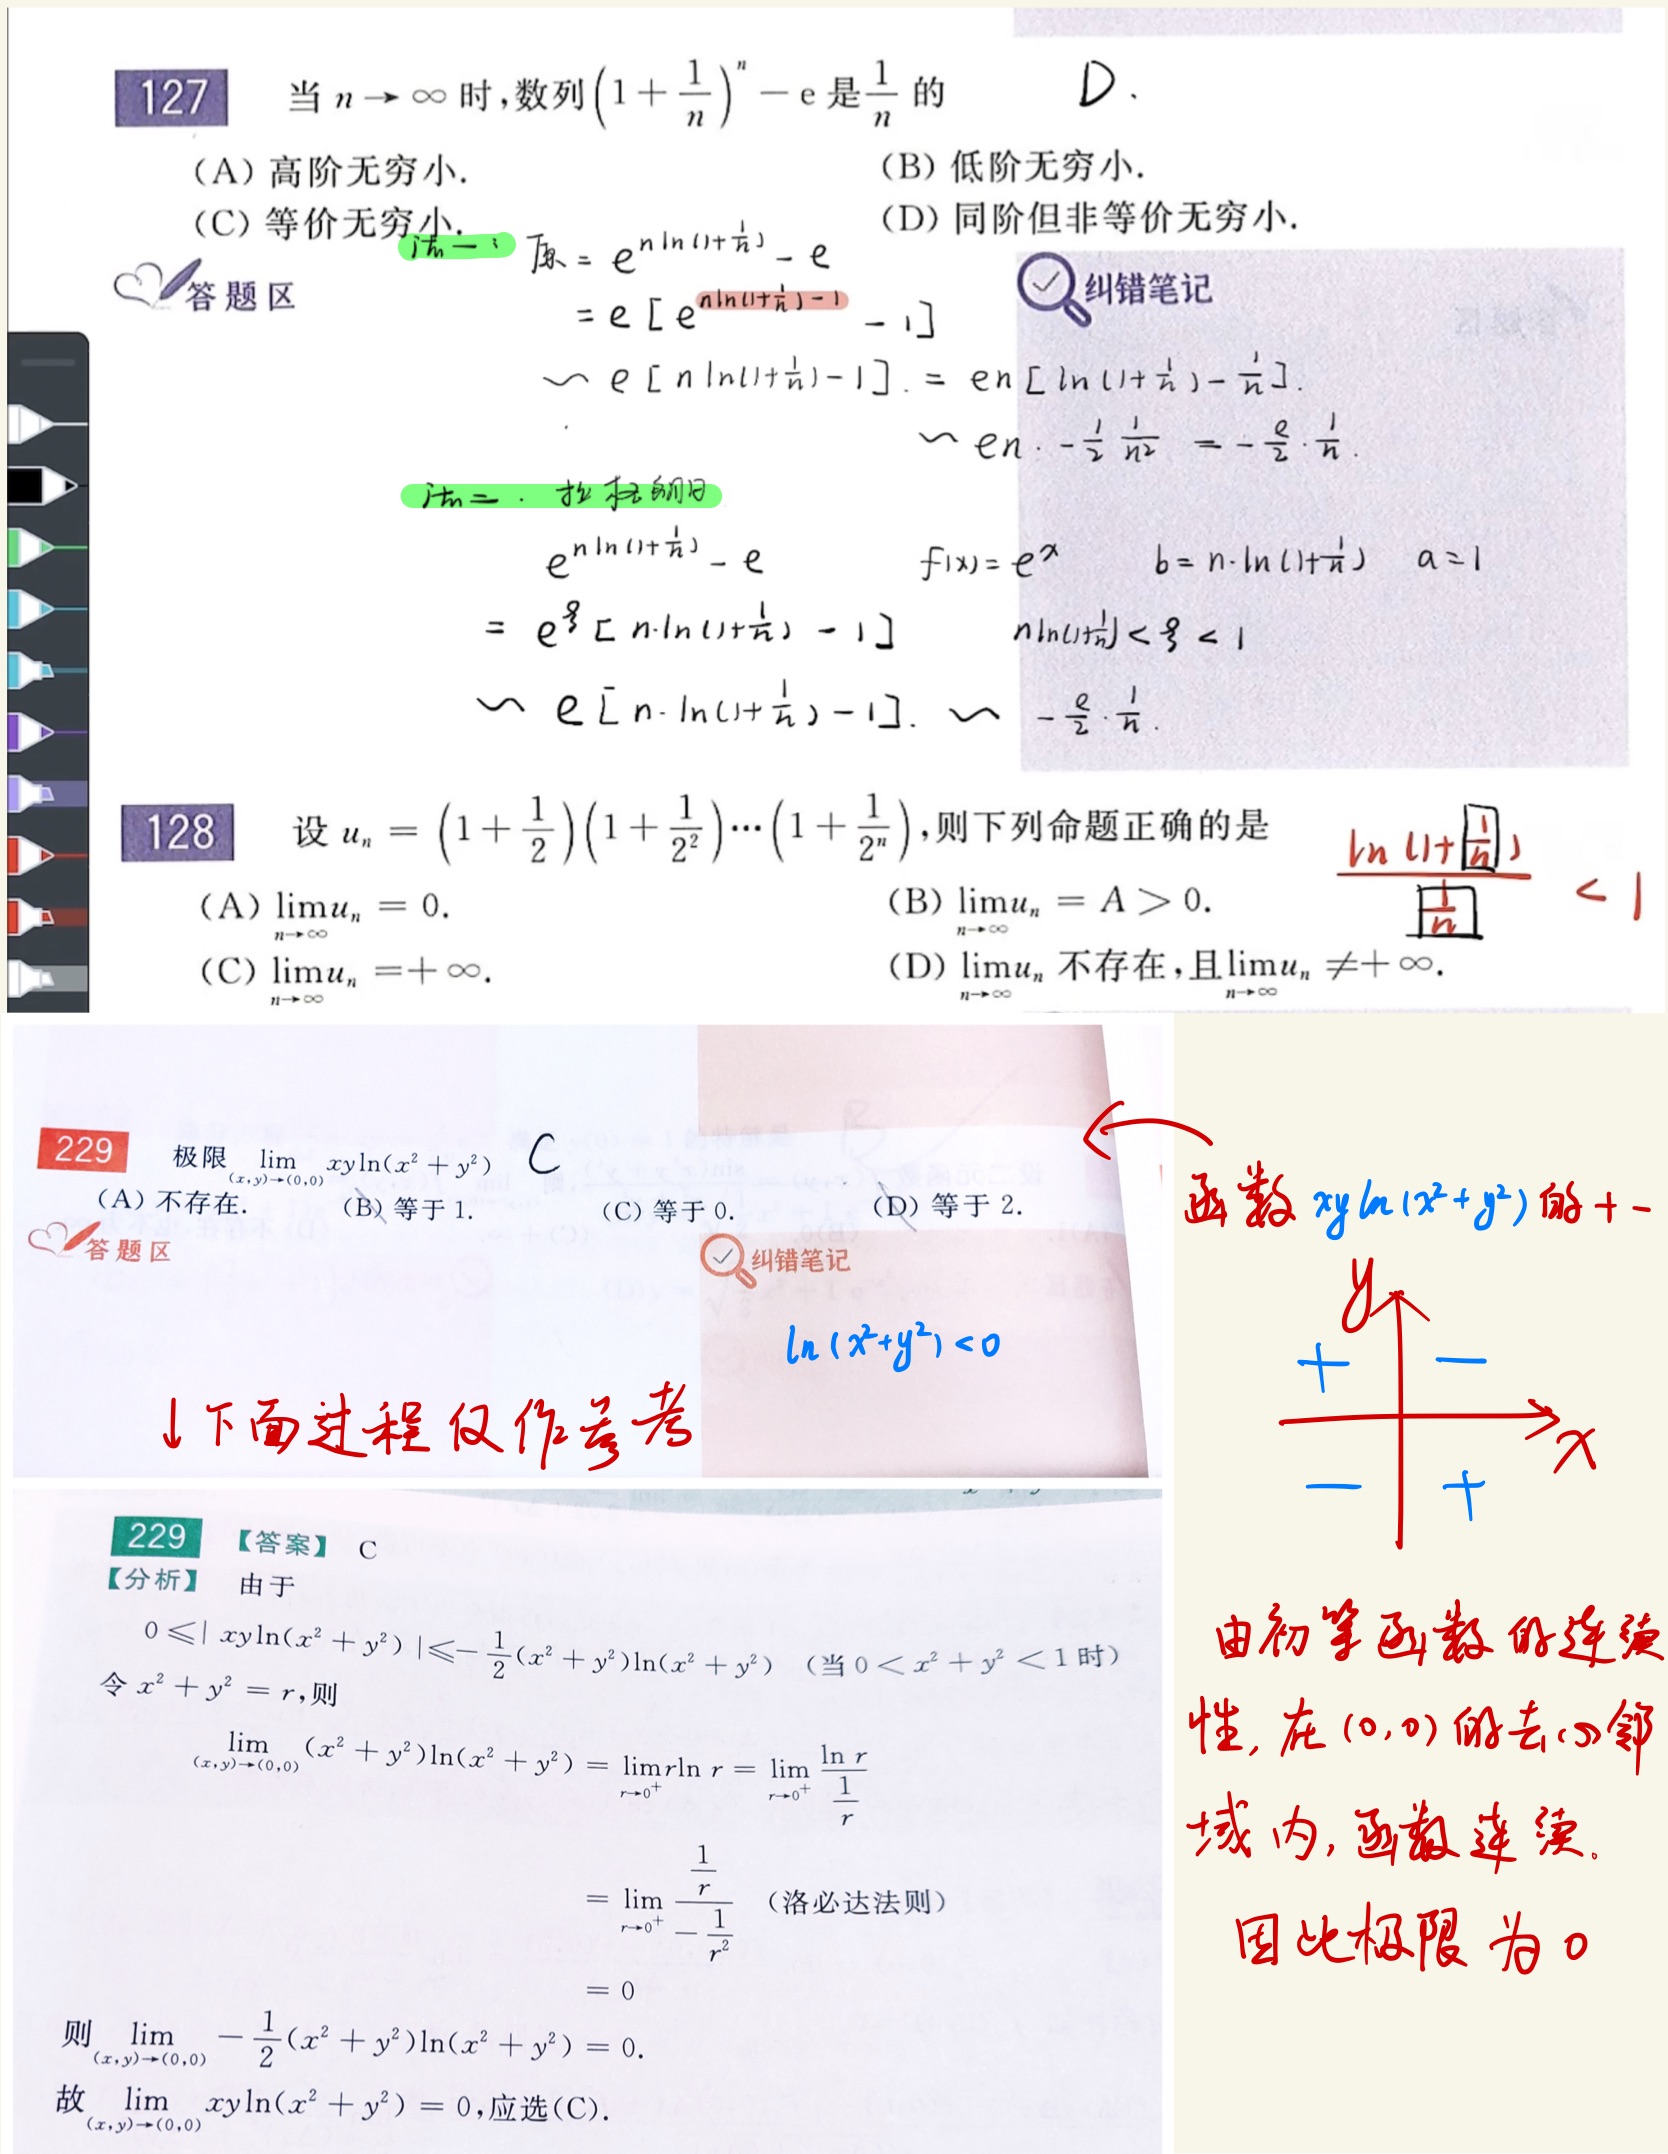 127 当 n → ∞ 时,数列(1 + 1/n)^n − e 是 1/n 的 D.
(A) 高阶无穷小. (B) 低阶无穷小.
(C) 等价无穷小. (D) 同阶但非等价无穷小.
答题区
纠错笔记
法一: 原 = e^{n ln(1+1/n)} - e
= e [e^{n ln(1+1/n) - 1} - 1]
~ e [n ln(1+1/n) - 1]. = en [ln(1+1/n) - 1/n].
~ en · -1/2 1/n² = -e/2 · 1/n.
法二. 拉格朗日
e^{n ln(1+1/n)} - e f(x) = e^x b = n·ln(1+1/n) a = 1
= e^ξ [n·ln(1+1/n) - 1] n ln(1+1/n) < ξ < 1
~ e [n·ln(1+1/n) - 1]. ~ -e/2 · 1/n.
128 设 u_n = (1 + 1/2)(1 + 1/2²)…(1 + 1/2^n),则下列命题正确的是
ln(1+1/n) / (1/n) < 1
(A) lim_{n→∞} u_n = 0. (B) lim_{n→∞} u_n = A > 0.
(C) lim_{n→∞} u_n = + ∞. (D) lim_{n→∞} u_n 不存在,且 lim_{n→∞} u_n ≠ + ∞.
229 极限 lim_{(x,y)→(0,0)} xyln(x² + y²) C
(A) 不存在. (B) 等于 1. (C) 等于 0. (D) 等于 2.
答题区
纠错笔记
ln(x²+y²) < 0
↓下面过程仅作参考
函数 xy ln(x²+y²) 的 + -
y
+ −
x
− +
由初等函数的连续
性, 在 (0,0) 的去心邻
域内, 函数连续.
因此极限为0
229 【答案】 C
【分析】 由于
0 ≤| xyln(x² + y²) |≤− 1/2 (x² + y²)ln(x² + y²) (当 0 < x² + y² < 1 时)
令 x² + y² = r,则
lim_{(x,y)→(0,0)} (x² + y²)ln(x² + y²) = lim_{r→0⁺} rln r = lim_{r→0⁺} ln r / (1/r)
= lim_{r→0⁺} (1/r) / (− 1/r²) (洛必达法则)
= 0
则 lim_{(x,y)→(0,0)} − 1/2 (x² + y²)ln(x² + y²) = 0.
故 lim_{(x,y)→(0,0)} xyln(x² + y²) = 0,应选(C).